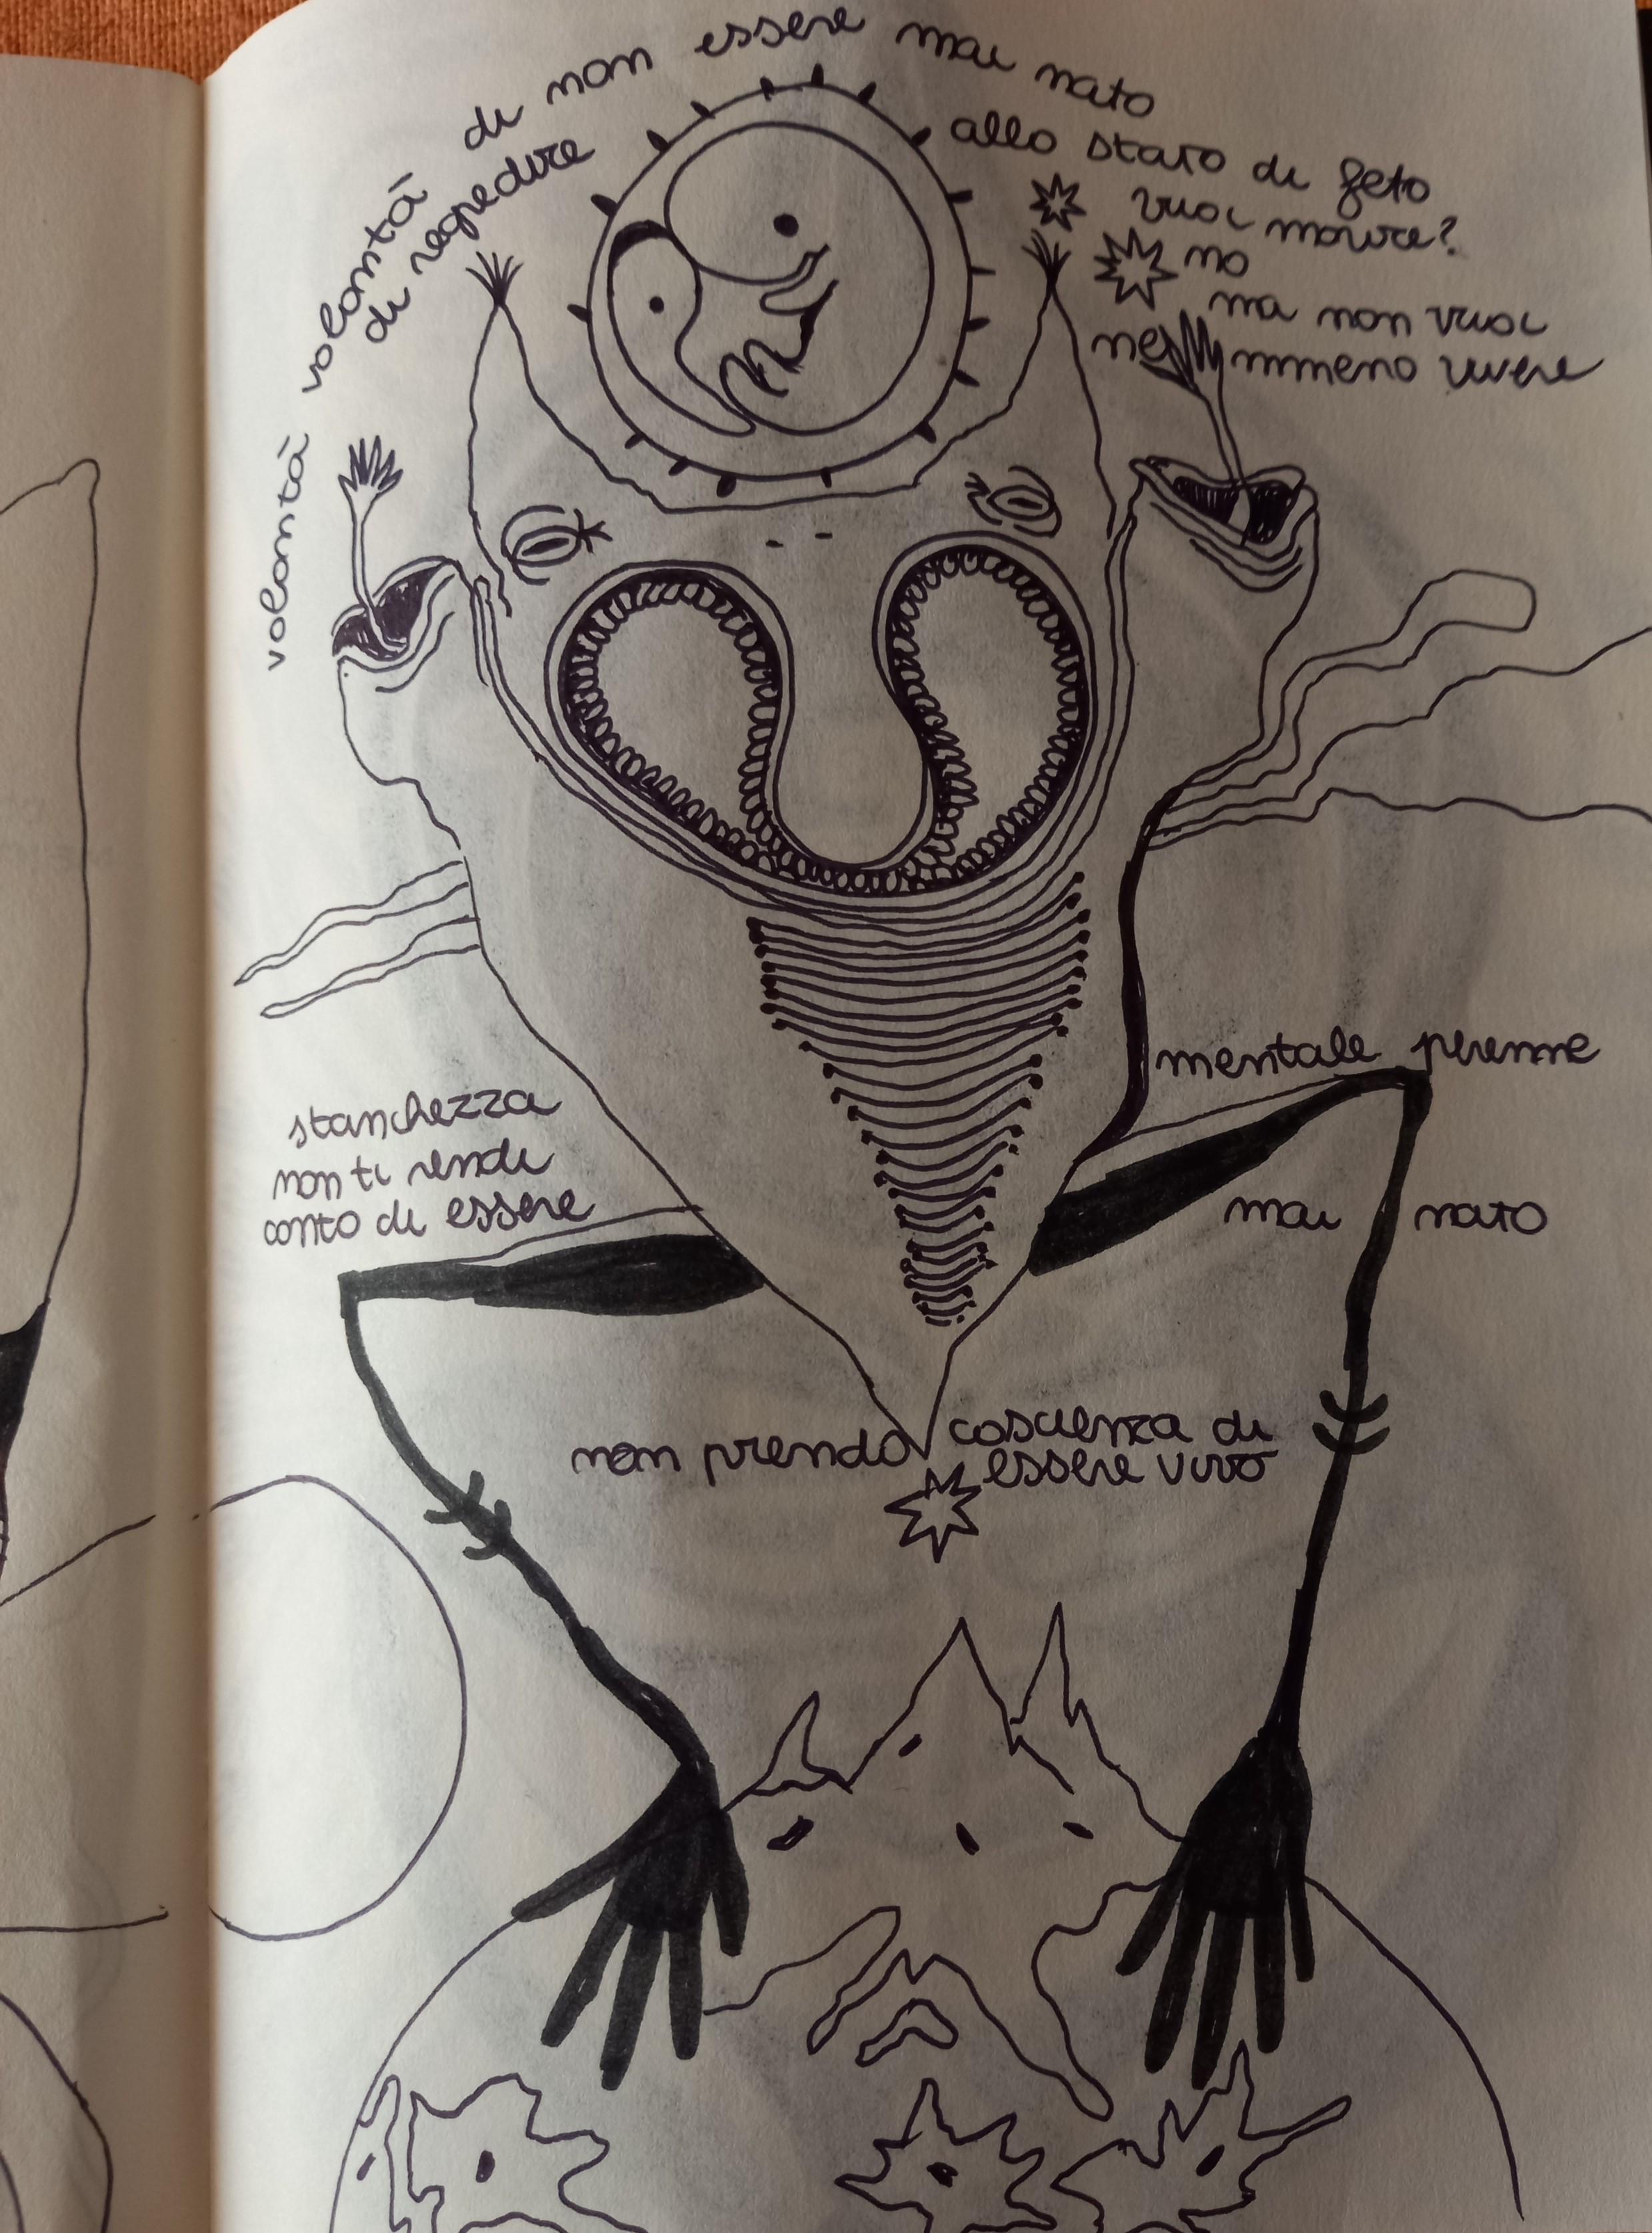 volontà volontà di non essere mai nato
di regredire allo stato di feto
vuoi morire?
no
ma non vuoi
nemmeno vivere
stanchezza mentale perenne
non ti rendi
conto di essere mai nato
non prendo coscienza di
essere vivo